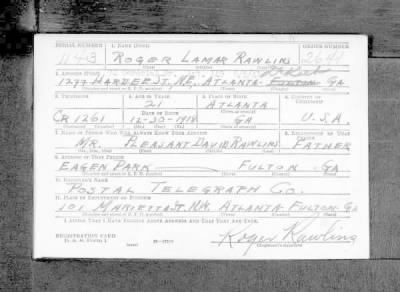 SERIAL NUMBER 1. NAME (Print) ORDER NUMBER
1143 ROGER LAMAR RAWLINS 2641
(First) (Middle) (Last)
2. ADDRESS (Print)
1277 HARDEE ST. NE, ATLANTA FULTON GA
3. TELEPHONE 4. AGE IN YEARS 5. PLACE OF BIRTH 6. COUNTRY OF CITIZENSHIP
21 ATLANTA
DATE OF BIRTH
CR 1261 12-30-1918 GA U.S.A.
7. NAME OF PERSON WHO WILL ALWAYS KNOW YOUR ADDRESS 8. RELATIONSHIP OF THAT PERSON
MR. PLEASANT DAVID RAWLINS FATHER
9. ADDRESS OF THAT PERSON
EAGEN PARK FULTON GA
10. EMPLOYER'S NAME
POSTAL TELEGRAPH CO.
11. PLACE OF EMPLOYMENT OR BUSINESS
101 MARIETTA ST. NW. ATLANTA-FULTON-GA
I AFFIRM THAT I HAVE VERIFIED ABOVE ANSWERS AND THAT THEY ARE TRUE.
REGISTRATION CARD
Roger Rawlins
(Registrant's signature)